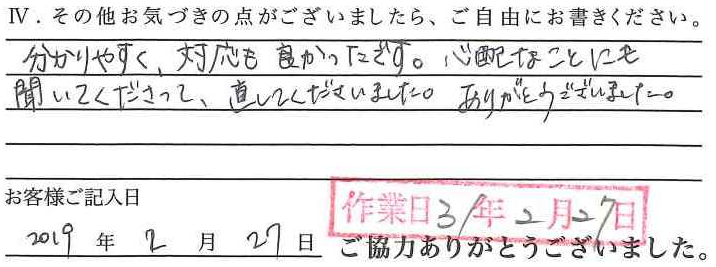 Ⅳ．その他お気づきの点がございましたら、ご自由にお書きください。
分かりやすく、対応も良かったです。心配なことにも
聞いてくださって、直してくださいました。ありがとうございました。
お客様ご記入日
作業日31年2月27日
2019年2月27日
ご協力ありがとうございました。